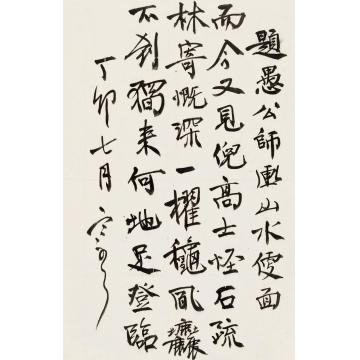 題愚公師畫山水便面
而今又見倪高士怪石疏
林寄慨深一擢龝風塵
不到獨来何地足登臨
丁卯七月